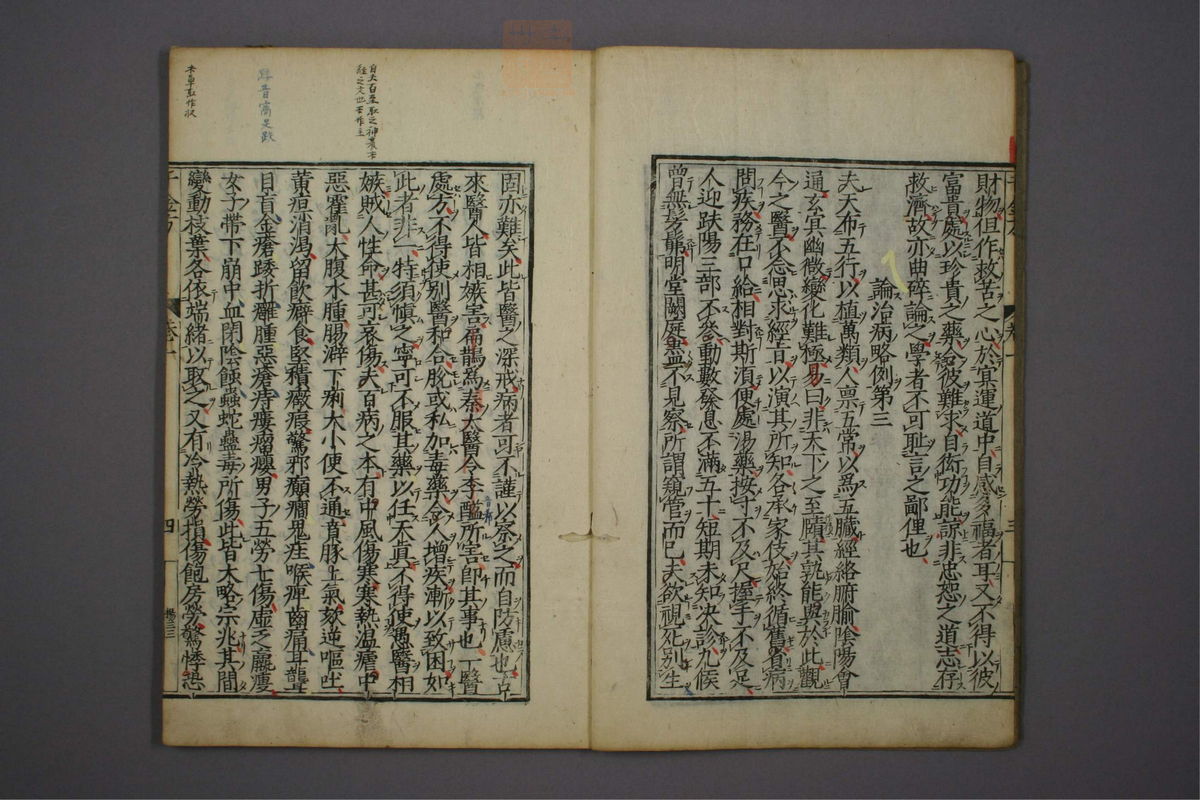 財物但作救苦之心於冥運道中自感多福者耳又不得以彼
富貴處以珍貴之藥令彼難求自衒功能諒非忠恕之道志存
救濟故亦曲碎論之學者不可恥言之鄙俚也
論治病略例第三
夫天布五行以植萬類人稟五常以為五臟經絡腑腧陰陽會
通玄冥幽微變化難極易曰非天下之至賾其孰能與於此觀
今之醫不念思求經旨以演其所知各承家伎始終循舊省病
問疾務在口給相對斯須便處湯藥按寸不及尺握手不及足
人迎趺陽三部不參動數發息不滿五十短期未知決診九候
曾無髣髴明堂闕庭盡不見察所謂窺管而已夫欲視死別生
固亦難矣此皆醫之深戒病者可不謹以察之而自防慮也古
來醫人皆相嫉害扁鵲為秦太醫令李醯所害即其事也一醫
處方不得使別醫和合脫或私加毒藥令人增疾漸以致困如
此者非一特須慎之寧可不服其藥以任天真不得使愚醫相
嫉賊人性命甚可哀傷夫百病之本有中風傷寒寒熱溫瘧中
惡霍亂大腹水腫腸澼下痢大小便不通賁豚上氣欬逆嘔吐
黃疸消渴留飲癖食堅積癥瘕驚邪癲癇鬼疰喉痺齒痛耳聾
目盲金瘡踒折癰腫惡瘡痔瘻瘤癭男子五勞七傷虛乏羸瘦
女子帶下崩中血閉陰蝕蟲蛇蠱毒所傷此皆大略宗兆其間
變動枝葉各依端緒以取之又有冷熱勞損傷飽房勞驚悸恐
千金方
卷一
四